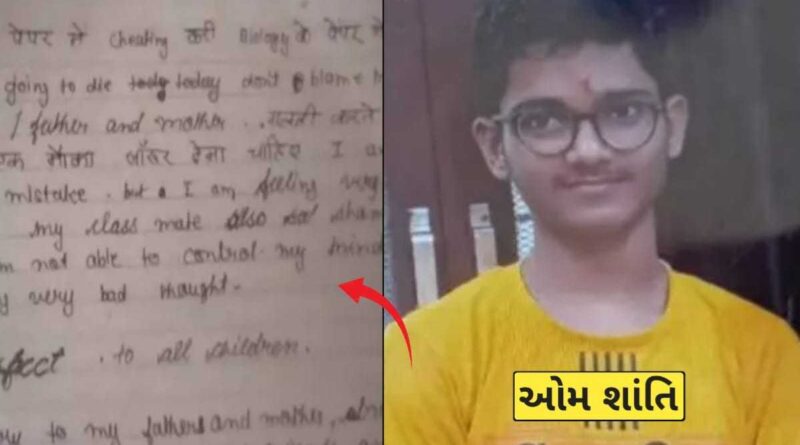 पेपर में cheating करी Biology के पेपर में
going to die today don't blame
father and mother . गलती करने
एक मौका और देना चाहिए I a
mistake . but I am feeling very
my class mate also
m not able to control my mind
very bad thought .
to all children .
to my fathers and mother ,
ઓમ શાંતિ